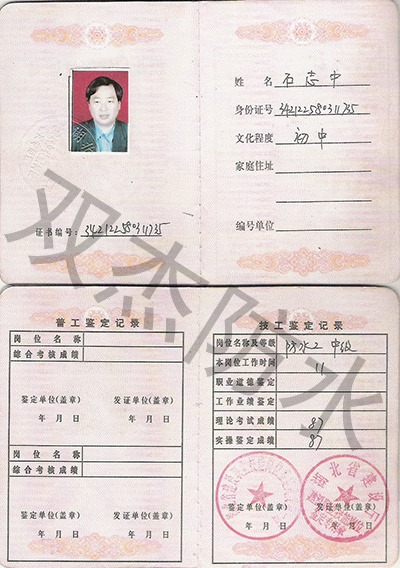 姓 名 石志中
身份证号 342122580311735
文化程度 初中
家庭住址
证书编号：342122580311735
编号单位
双杰防水
普工鉴定记录
岗位名称
综合考核成绩
鉴定单位(盖章) 发证单位(盖章)
年 月 日 年 月 日
岗位名称
综合考核成绩
鉴定单位(盖章) 发证单位(盖章)
年 月 日 年 月 日
技工鉴定记录
岗位名称及等级 防水工 中级
本岗位工作时间 11
职业道德鉴定
工作业绩鉴定
理论考试成绩 87
实操鉴定成绩 87
鉴定单位(盖章) 发证单位(盖章)
年 月 日 年 月 日
北省建设厅